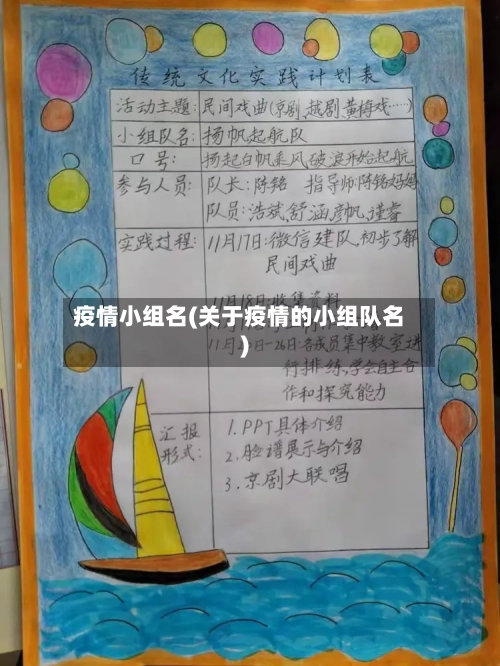 传统文化实践计划表
活动主题: 民间戏曲(京剧,越剧,黄梅戏……)
小组队名: 扬帆起航队
口号: 扬起白帆乘风破浪开始起航
参与人员: 队长:陈铭 指导师:陈铭妈妈
队员:浩斌,舒涵,彦帆,瑾睿
实践过程: 11月17日:微信建队,初步了解
民间戏曲
11月18日:收集资料
疫情小组名(关于疫情的小组队名
)
26日:各成员集中教室进
行排练,学会自主合
作和探究能力
汇报
形式:
1.PPT具体介绍
2.脸谱展示与介绍
3.京剧大联唱